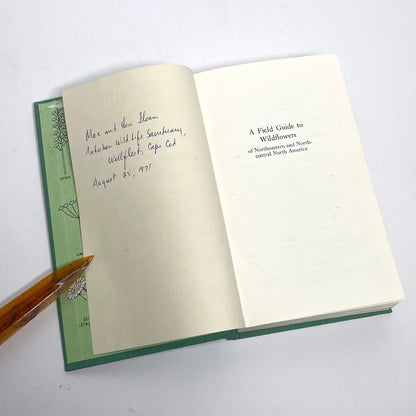 Max and
Audubon Wild Life Sanctuary,
Wellfleet, Cape Cod
August 25, 1971
A Field Guide to
Wildflowers
of Northeastern and North-
central North America